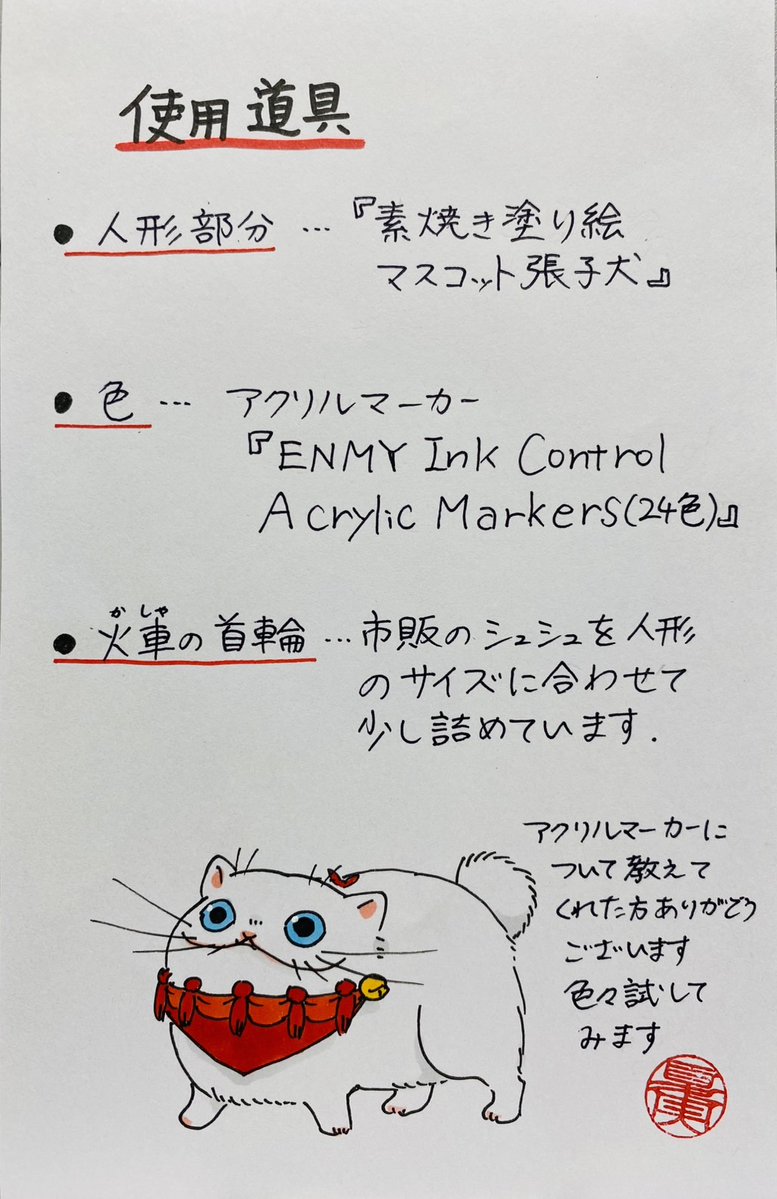 使用道具
● 人形部分 … 『素焼き塗り絵
マスコット張子犬』
● 色 … アクリルマーカー
『ENMY Ink Control
Acrylic Markers(24色)』
かしゃ
● 火車の首輪 … 市販のシュシュを人形
のサイズに合わせて
少し詰めています.
アクリルマーカーに
ついて教えて
くれた方ありがとう
ございます
色々試して
みます